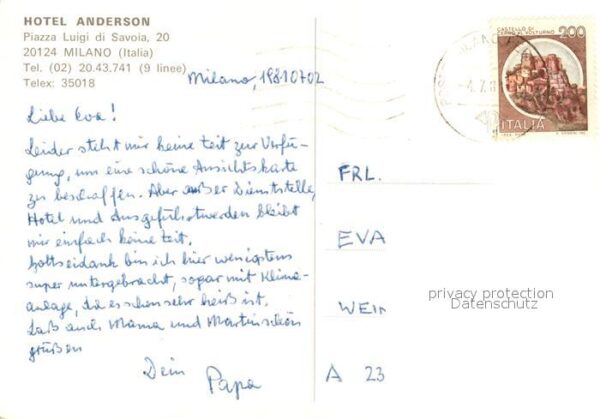 HOTEL ANDERSON
Piazza Luigi di Savoia, 20
20124 MILANO (Italia)
Tel. (02) 20.43.741 (9 linee)
Telex: 35018
Milano, 19810702
Liebe Eva!
Leider steht mir keine Zeit zur Verfü-
gung, um eine schöne Ansichtskarte
zu beschaffen. Aber außer Dienststelle,
Hotel und Ausgeführtwerden bleibt
mir einfach keine Zeit.
Gottseidank bin ich hier wenigstens
super untergebracht, sogar mit Klima-
anlage, da es schon sehr heiß ist.
Laß auch Mama und Martin schön
grüßen
Dein Papa
CASTELLO DI
CERRO AL VOLTURNO
200
ITALIA
MILANO
4.7.8
FRL.
EVA
WEIN
privacy protection
Datenschutz
A 23